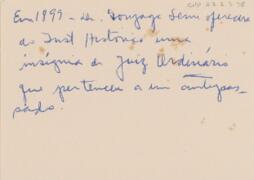 Em 1899 - Dr. Gonzaga Sem oferece
ao Inst Historico uma
insígnia de Juiz Ordinário
que pertenceu a um antepas-
sado.